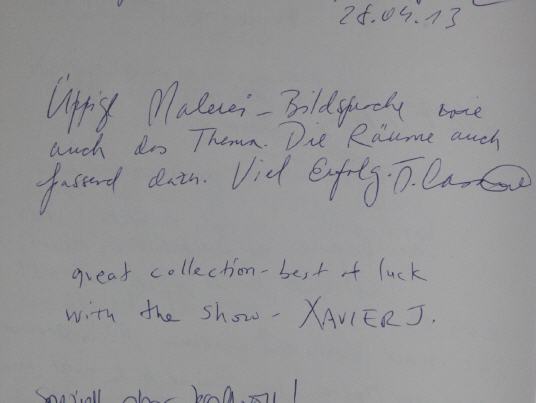 28.04.13
Üppige Malerei - Bildsprache wie
auch das Thema. Die Räume auch
passend dazu. Viel Erfolg.
great collection - best of luck
with the show - XAVIER J.